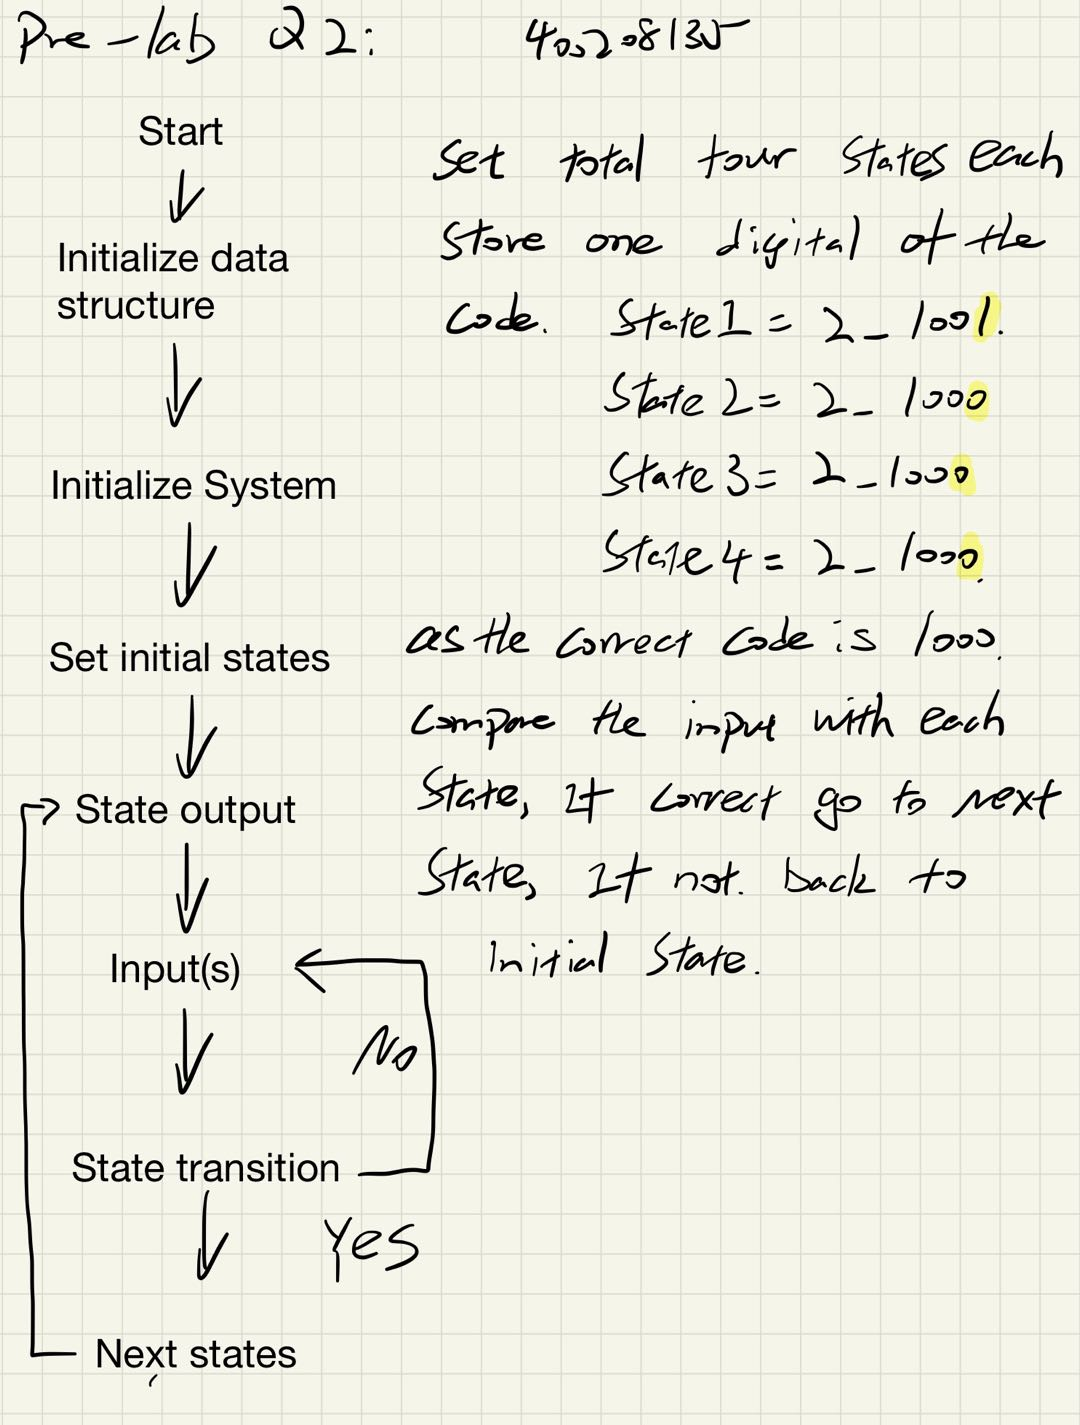 Pre-lab Q2:
400208135
Start
Initialize data
structure
Initialize System
Set initial states
State output
Input(s)
No
State transition
Yes
Next states
Set total four states each
store one digital of the
code. State1 = 2_1001.
State2= 2_1000
State3= 2_1000
State4= 2_1000.
as the correct code is 1000.
compare the input with each
State, If correct go to next
State, If not. back to
Initial State.